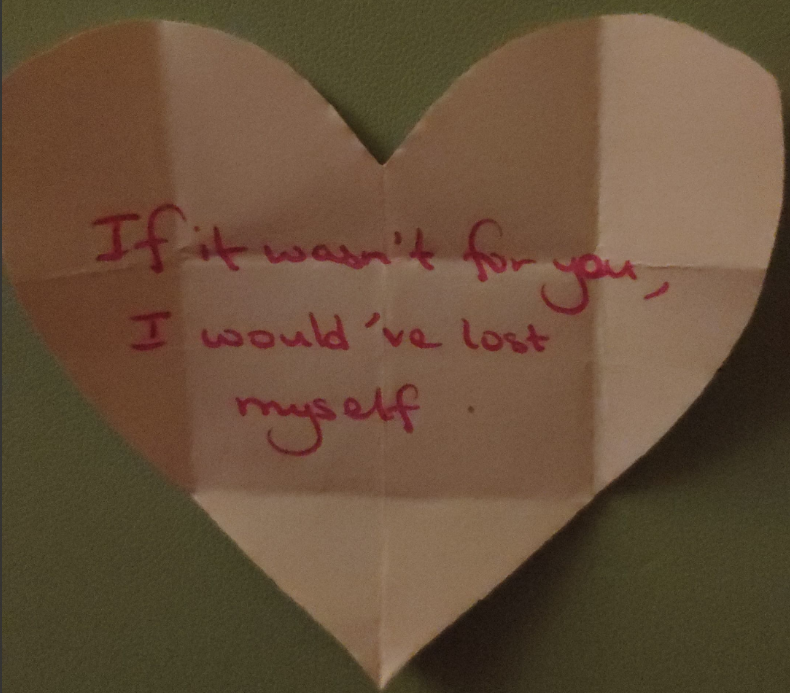 If it wasn't for you,
I would've lost
myself.